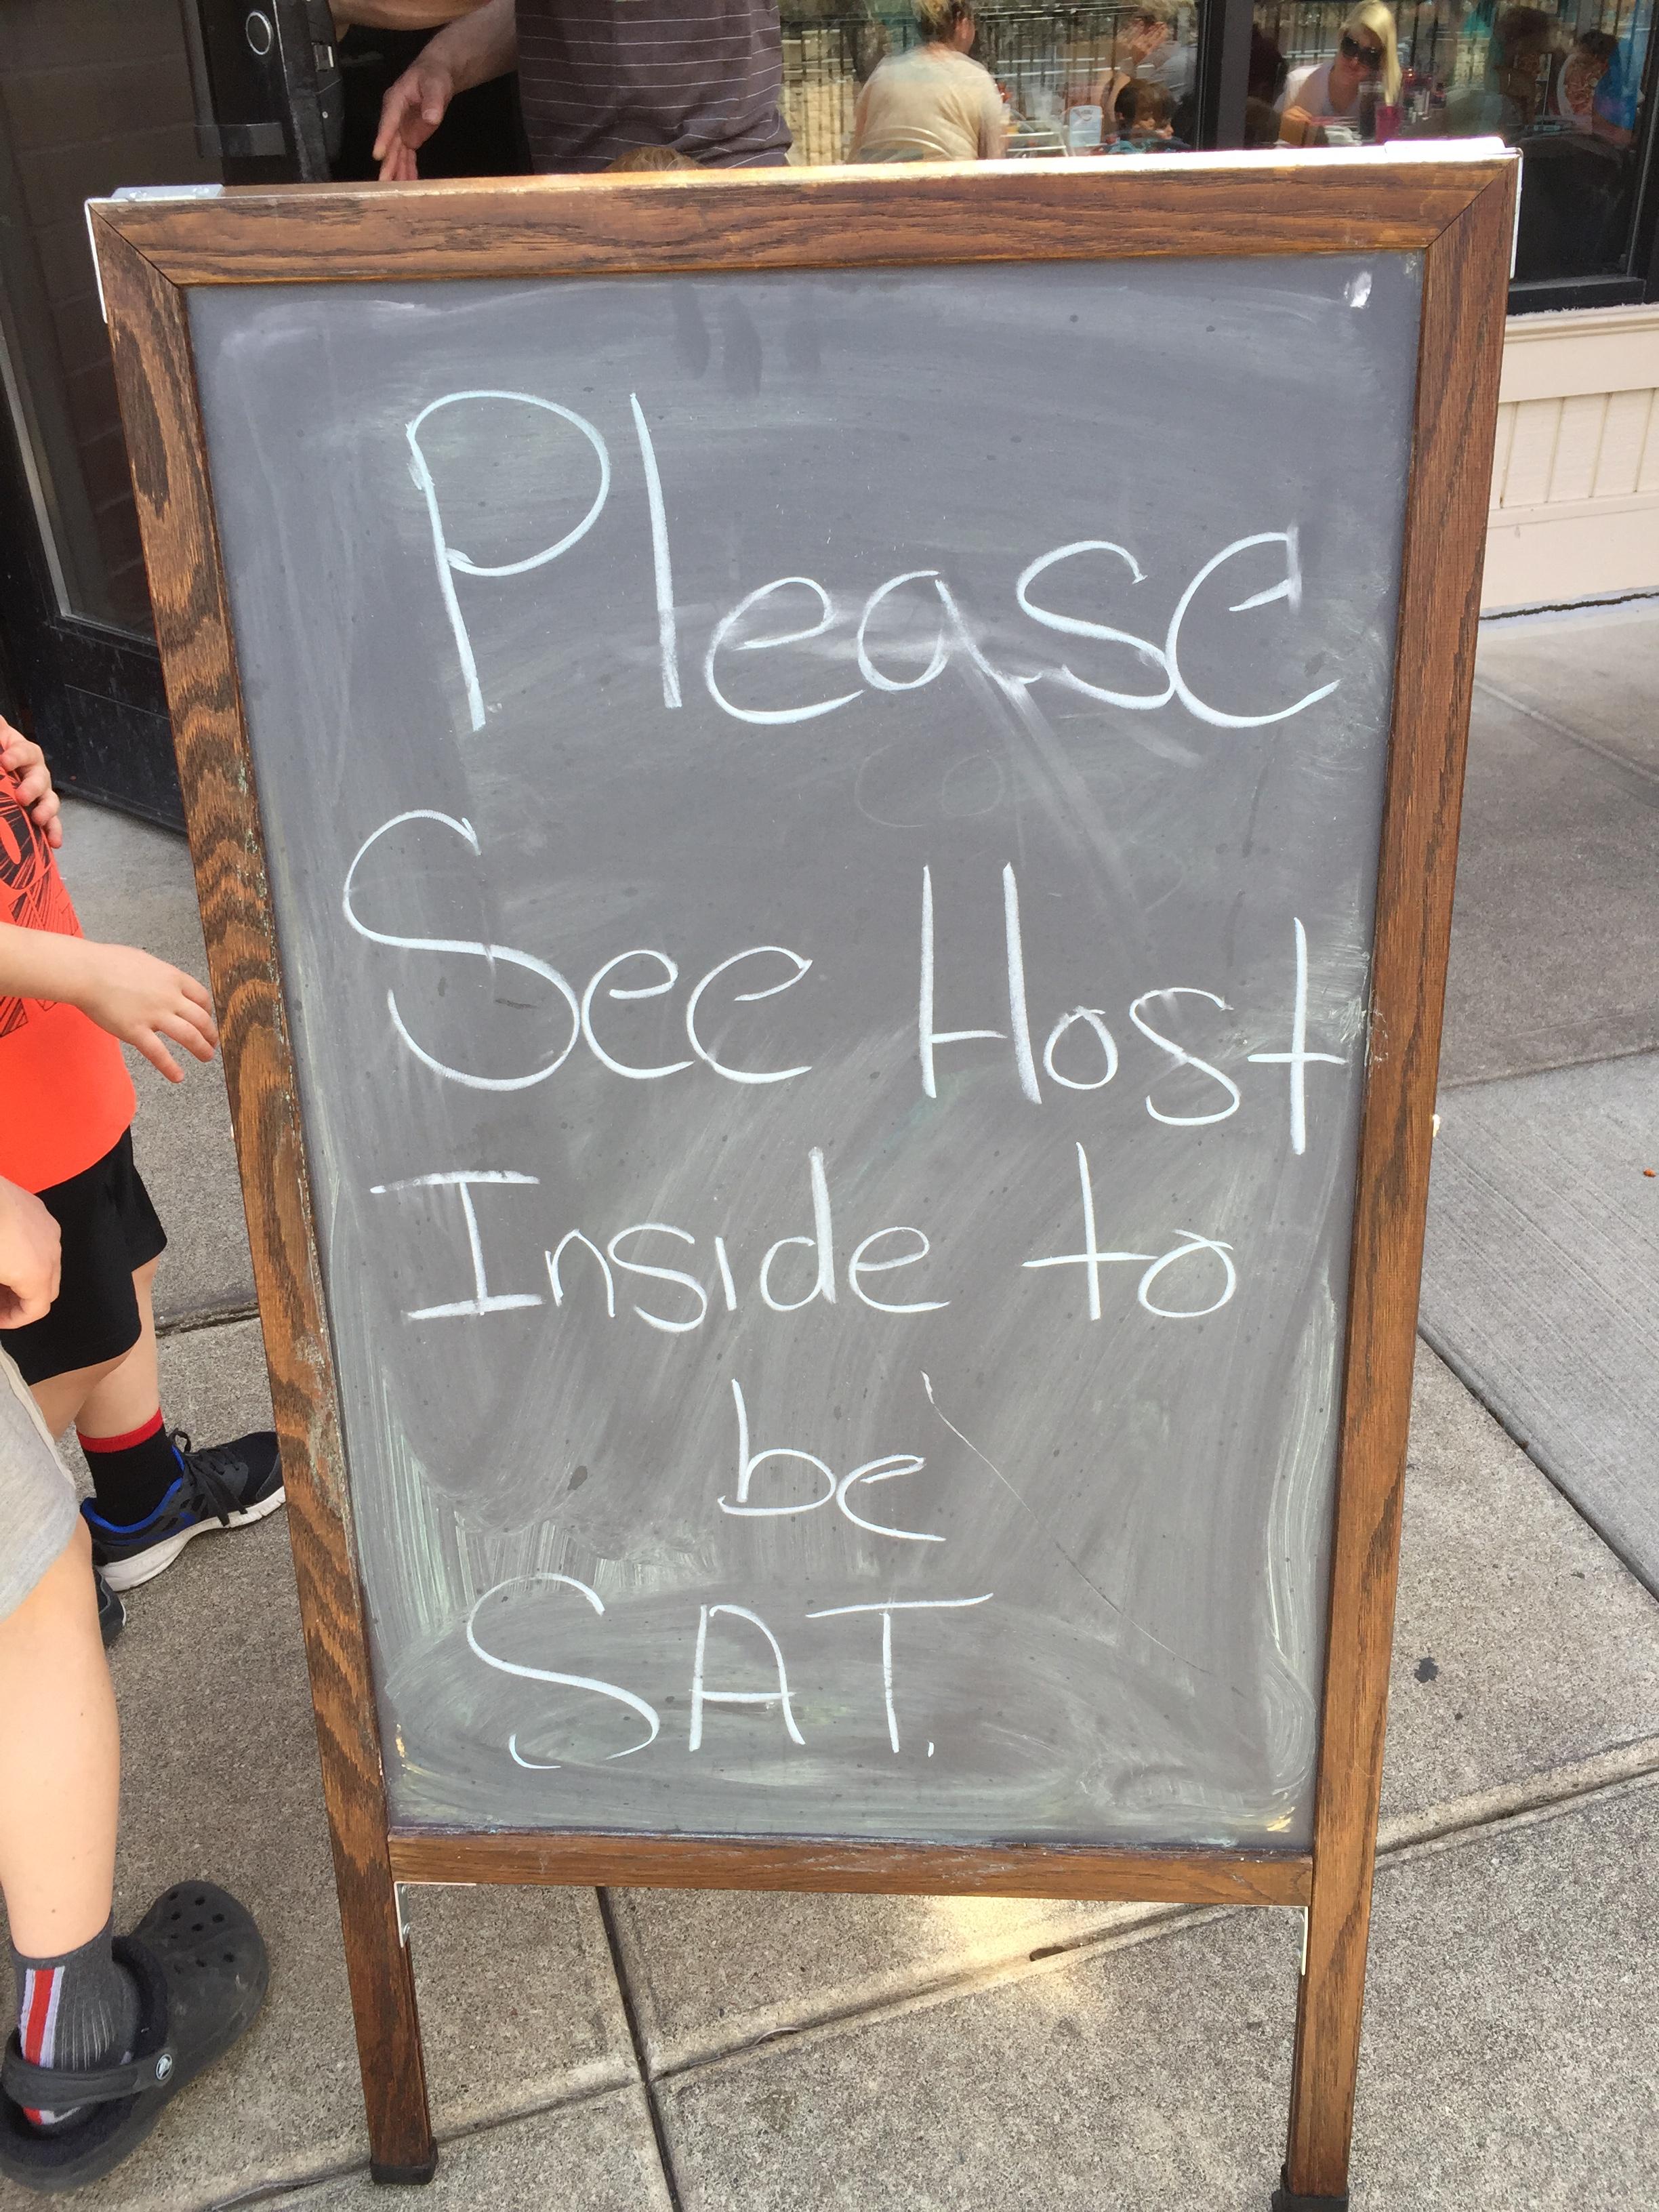 Please
See Host
Inside to
be
SAT.